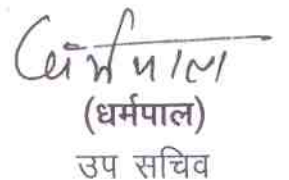 धर्मपाल
(धर्मपाल)
उप सचिव